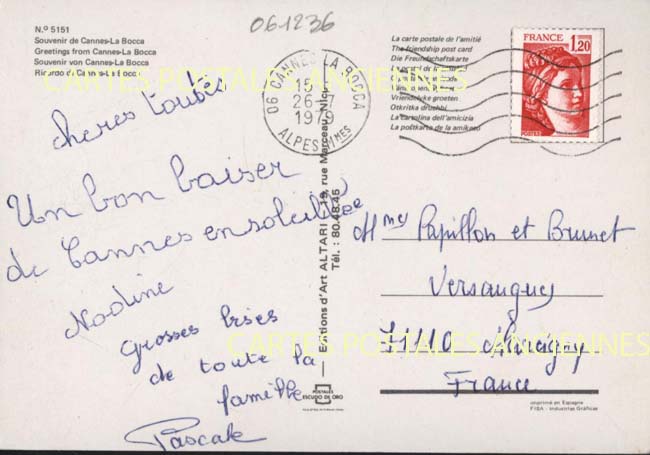 061236
N.º 5151
Souvenir de Cannes-La Bocca
Greetings from Cannes-La Bocca
Souvenir von Cannes-La Bocca
Ricordo di Cannes-La Bocca
cheres toutes
Un bon baiser
de Cannes ensoleillée
Nadine
Grosses bises
de toute la
famille
Pascale
Editions d'Art ALTARI - 19, rue Marceau Nice
Tél. : 80.48.45
POSTALES
ESCUDO DE ORO
06 CANNES LA BOCCA
26-7
1979
ALPES MMES
La carte postale de l'amitié
The friendship post card
Die Freundschaftskarte
Vriendelyke groeten
Otkritka druzhbi
La cartolina dell'amicizia
La postkarta de la amikeco
FRANCE
1,20
Mmes Papillon et Brunet
Versaugues
71110 Marcigny
France
imprimé en Espagne
FISA - Industrias Gráficas
CARTES POSTALES ANCIENNES
CARTES POSTALES ANCIENNES